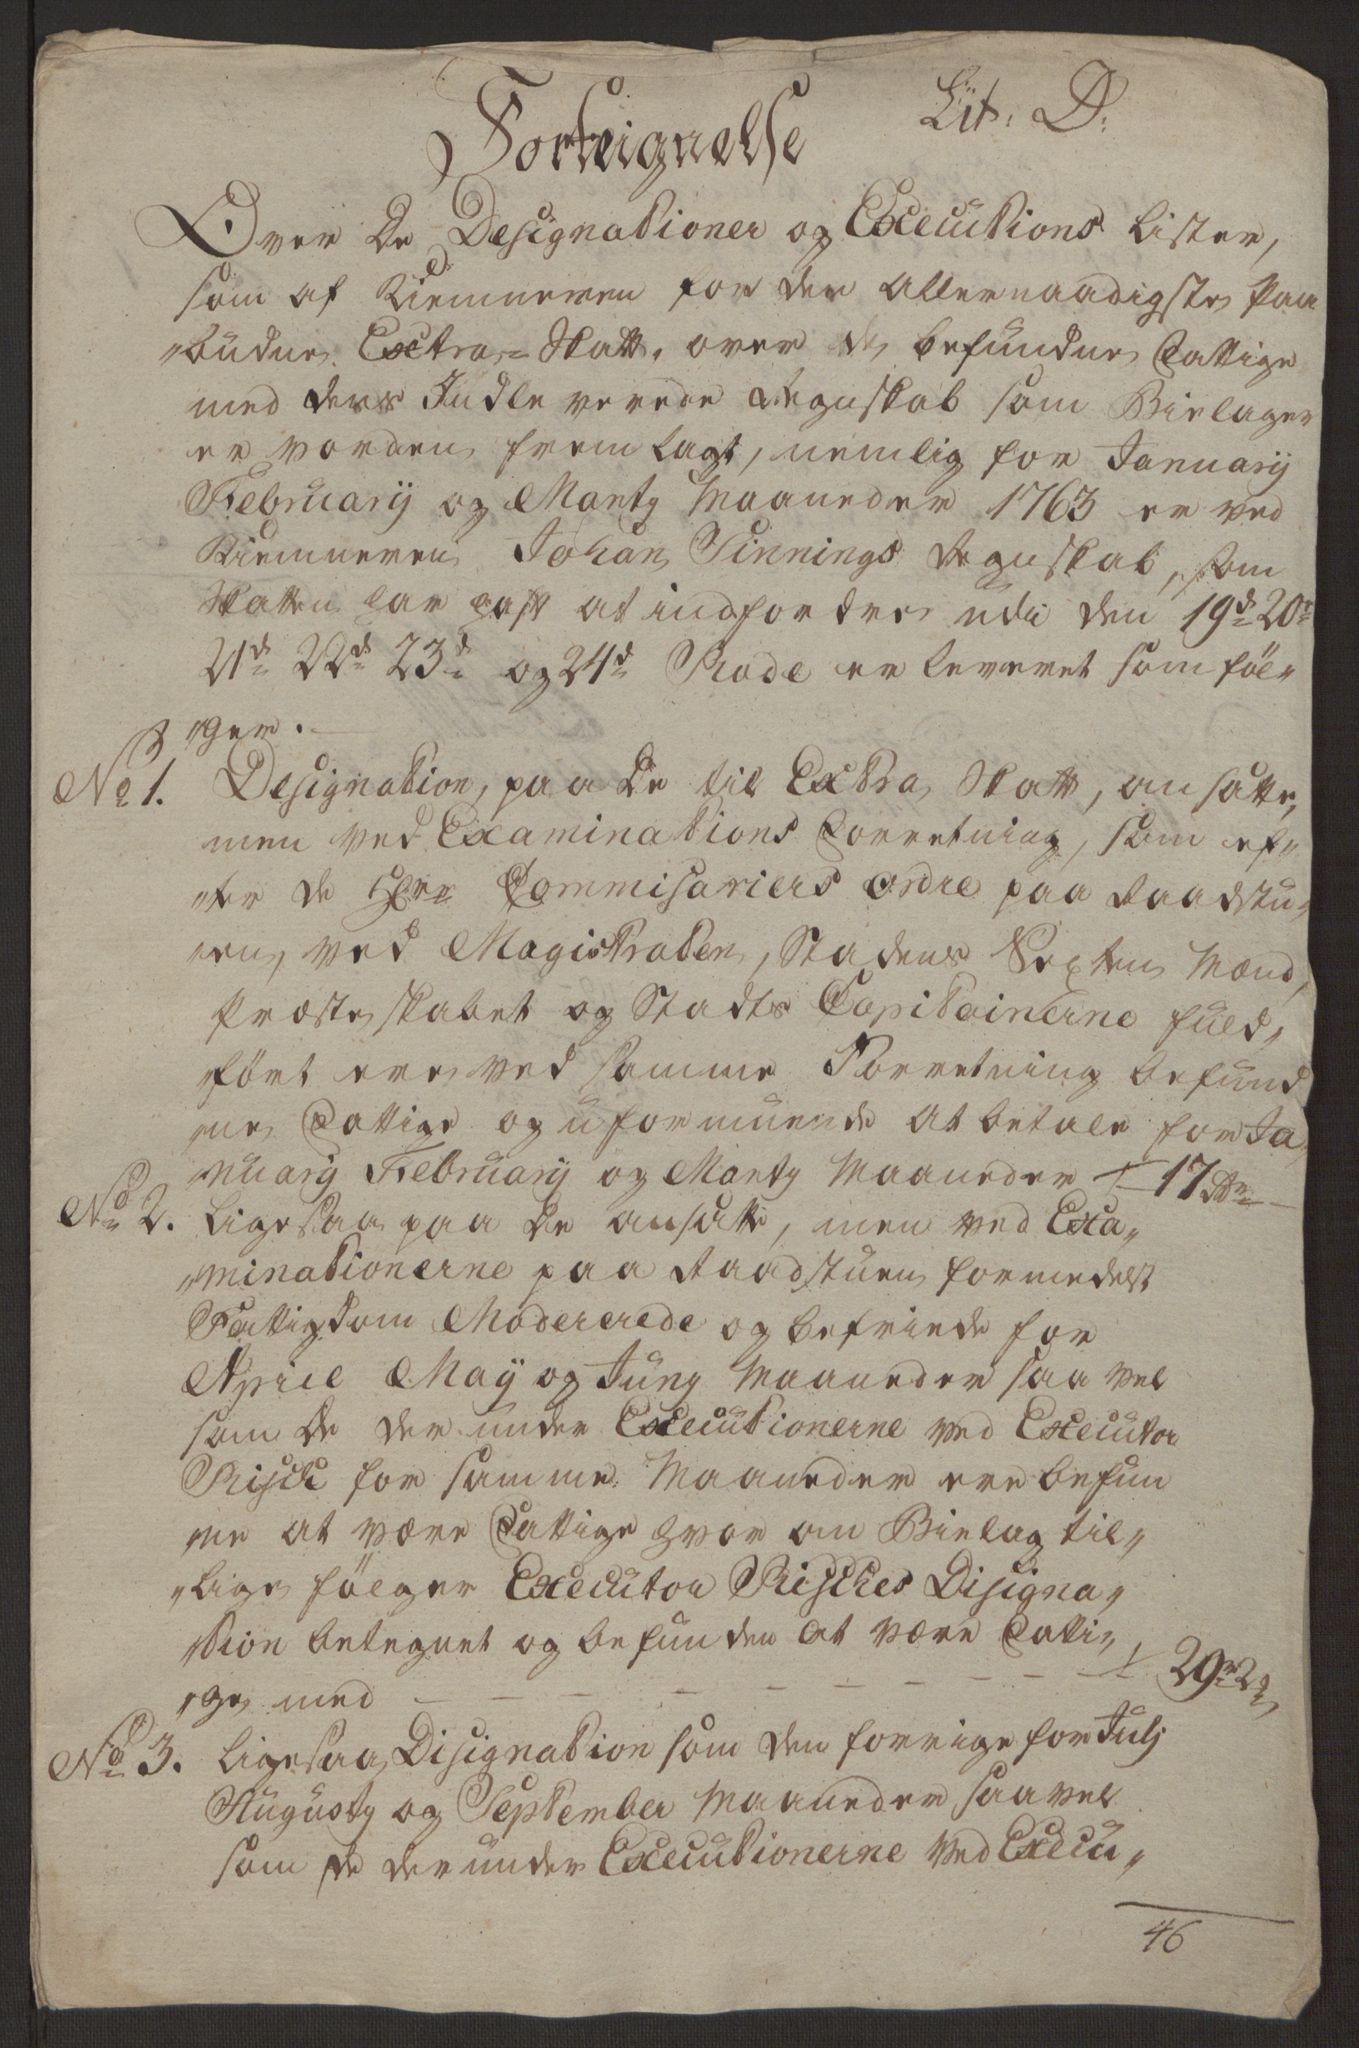 Lit: D:
Forteignelse
Over De Designationer og Executions Lister,
som af Kiemneren for den allernaadigste Paa
budne Extra-Skatt, over de befundne Fattige
med ders Indleverede Regnskab som Bielager
er vorden frem lagt, nemlig for Januarij
Februarij og Marty Maaneder 1763 er ved
Kiemneren Johan Sinnings Regnskab, som
Skatten har haft at indfordre udi den 19d 20de
21d 22d 23d og 24d Rode er leveret som föl-
ger.
No 1. Designation, paa De til Extra Skatt, ansatte,
men ved Examinations Forretning, som ef-
ter de Hrr Commisariers ordre paa Raadstu-
en, ved Magistraten, Stadens Sexten Mænd,
Præsteskabet og Stadts Capitainerne fuld-
ført ere ved samme Forretning befund
ne Fattige og uformuende at betale for Ja
nuarij Februarij og Marty Maaneder 17
No 2. Ligesaa paa De ansatte, men ved Exa-
minationerne paa Raadstuen formedelst
Fattigdom Modererede og befriede for
Aprill May og Juny Maaneder saa vel
som De der under Executionerne ved Executor
Risch for samme Maaneder ere befun
ne at være Fattige hvor om Bielag til-
lige fölger Executor Risches Disigna-
tion betegnet og befunden at være Fatti-
ge med - - - - - - - - 29 2
No 3. Ligesaa Disignation som den forrige for Julj
Augusty og September Maaneder saavel
som De der under Executionerne ved Execu-
46